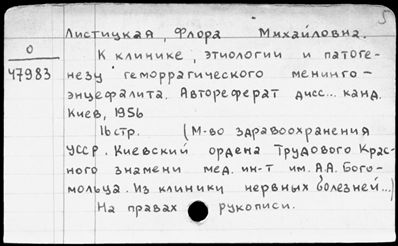 5
Листицкая, Флора Михайловна.
О
47983
К клинике, этиологии и патоге-
незу геморрагического менинго-
энцефалита. Автореферат дисс... канд.
Киев, 1956
16 стр. (М-во здравоохранения
УССР. Киевский ордена Трудового Крас-
ного знамени мед. ин-т им. А.А. Бого-
мольца. Из клиники нервных болезней...)
На правах рукописи.